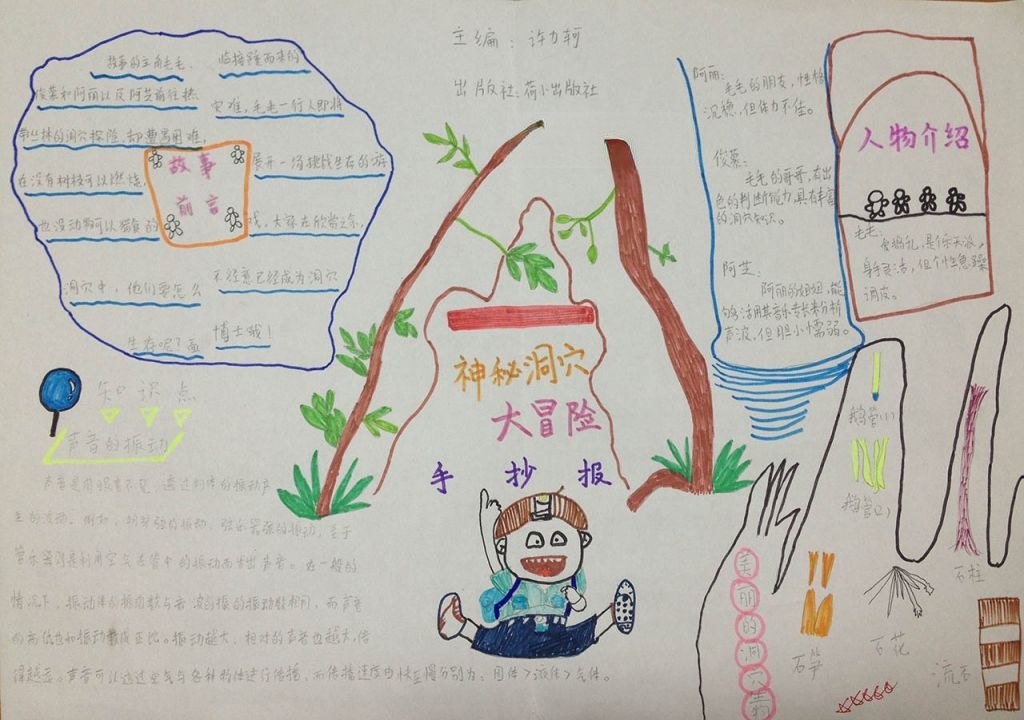 主编：许力轲
出版社：荷小出版社
故事的主角毛毛、
俊荣和阿丽以及阿芝前往热
带丛林的洞穴探险，却遭遇困难，
在没有树枝可以燃烧，
也没动物可以猎食的
洞穴中，他们要怎么
生存呢？面
临接踵而来的
灾难，毛毛一行人即将
展开一场挑战生存的游
戏，大家在欣赏之余，
不经意已经成为洞穴
博士哦！
故事
前言
阿丽：
毛毛的朋友，性格
沉稳，但体力不佳。
俊荣：
毛毛的哥哥，有出
色的判断能力，具有丰富
的洞穴知识。
阿芝：
阿丽的姐姐，能
够活用其音乐专长来分析
声波，但胆小懦弱。
人物介绍
毛毛：
爱捣乱，是乐天派，
身手灵活，但个性急躁
调皮。
神秘洞穴
大冒险
手抄报
知识点
声音的振动
声音是用眼看不见，透过物体的振动产
生的波动。例如，钢琴弦的振动，弦乐器弦的振动，至于
管乐器则是利用空气在管中的振动而发出声音。在一般的
情况下，振动体的振动数与音波的振动数相同，而声音
的高低也和振动数成正比。振动越大，相对的声音也越大，传
得越远。声音可以透过空气与各种物体进行传播，而传播速度由快至慢分别为：固体＞液体＞气体。
美丽的洞穴生物
鹅管(1)
鹅管(2)
石柱
石笋
石花
流石